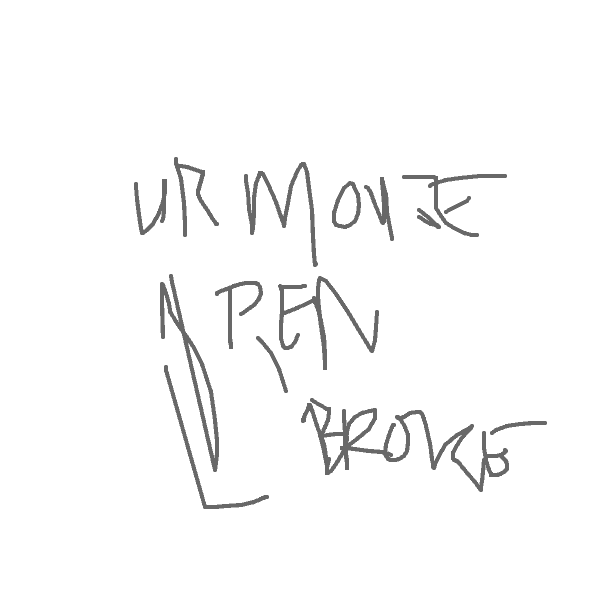 UR MOVE
PEN
BROKE